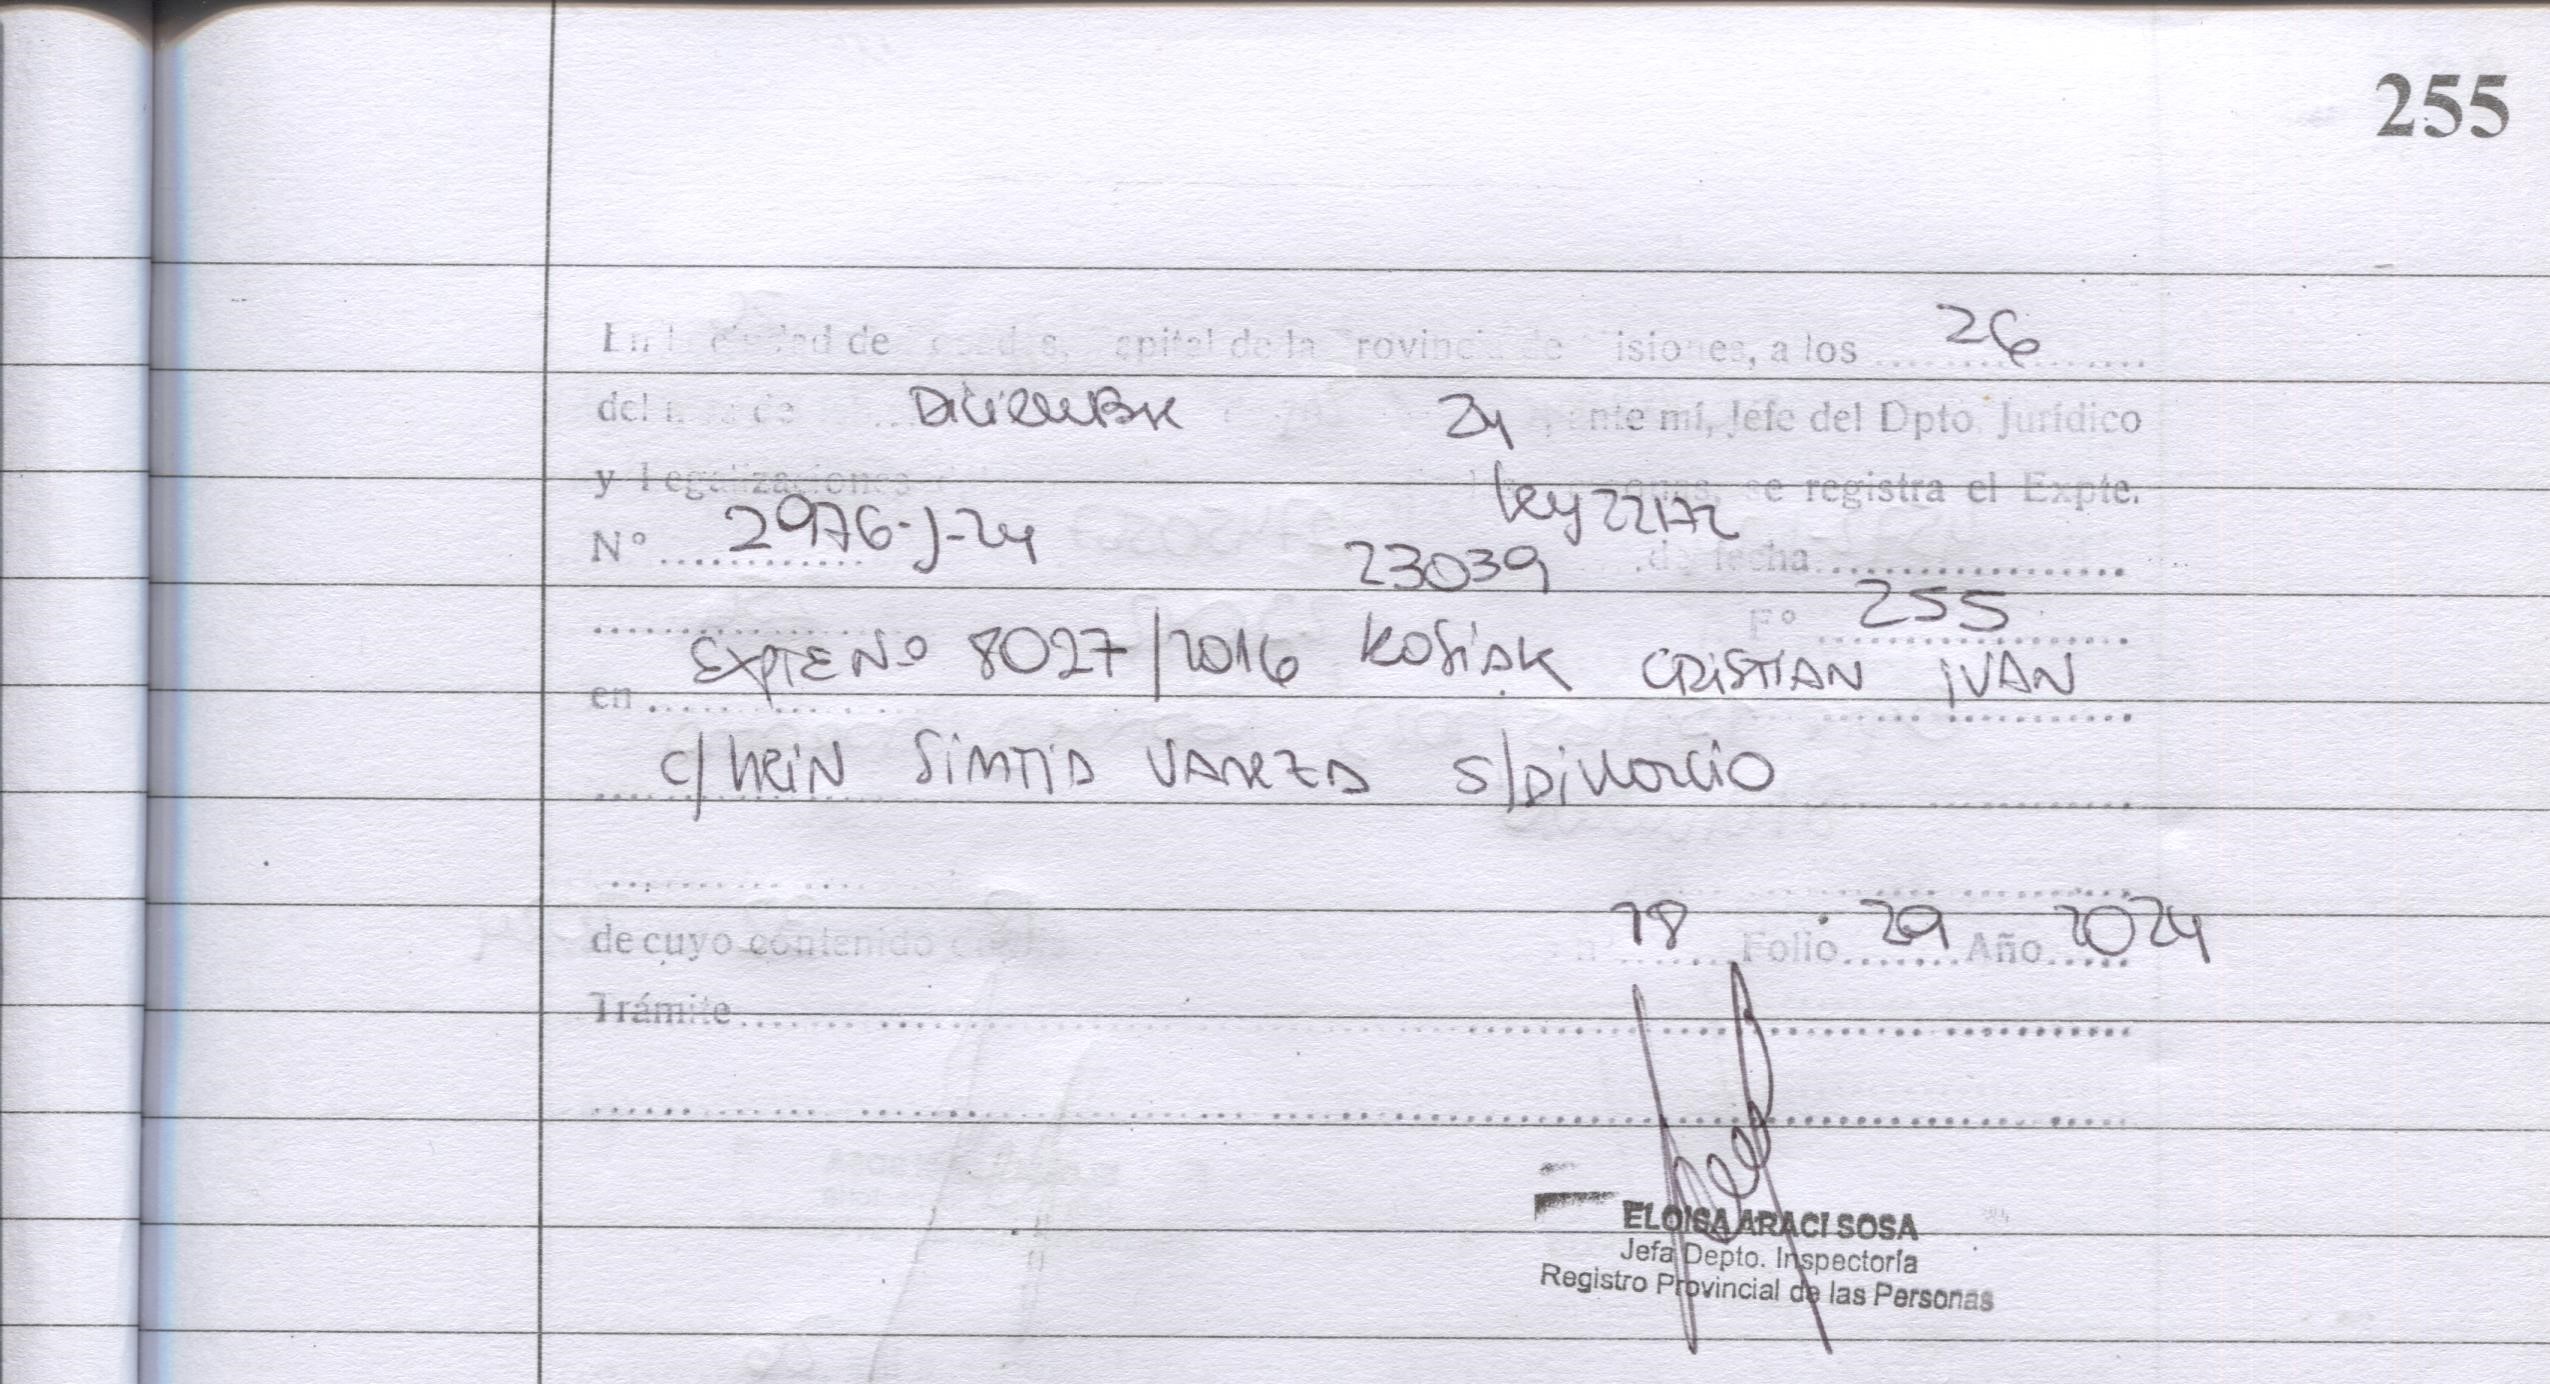 255
En la ciudad de Posadas, Capital de la Provincia de Misiones, a los 26
del mes de Diciembre 24, ante mí, Jefe del Dpto. Jurídico
y Legalizaciones se registra el Expte.
Ley 22172
Nº 2976-J-24 23039 de fecha
Fº 255
en EXPTE Nº 8027/2016 KOSIAK CRISTIAN IVAN
c/ HEIN SINTIA VANEZA s/DIVORCIO
de cuyo contenido nº 78 Folio 29 Año 2024
Trámite
ELOISA ARACI SOSA
Jefa Depto. Inspectoría
Registro Provincial de las Personas